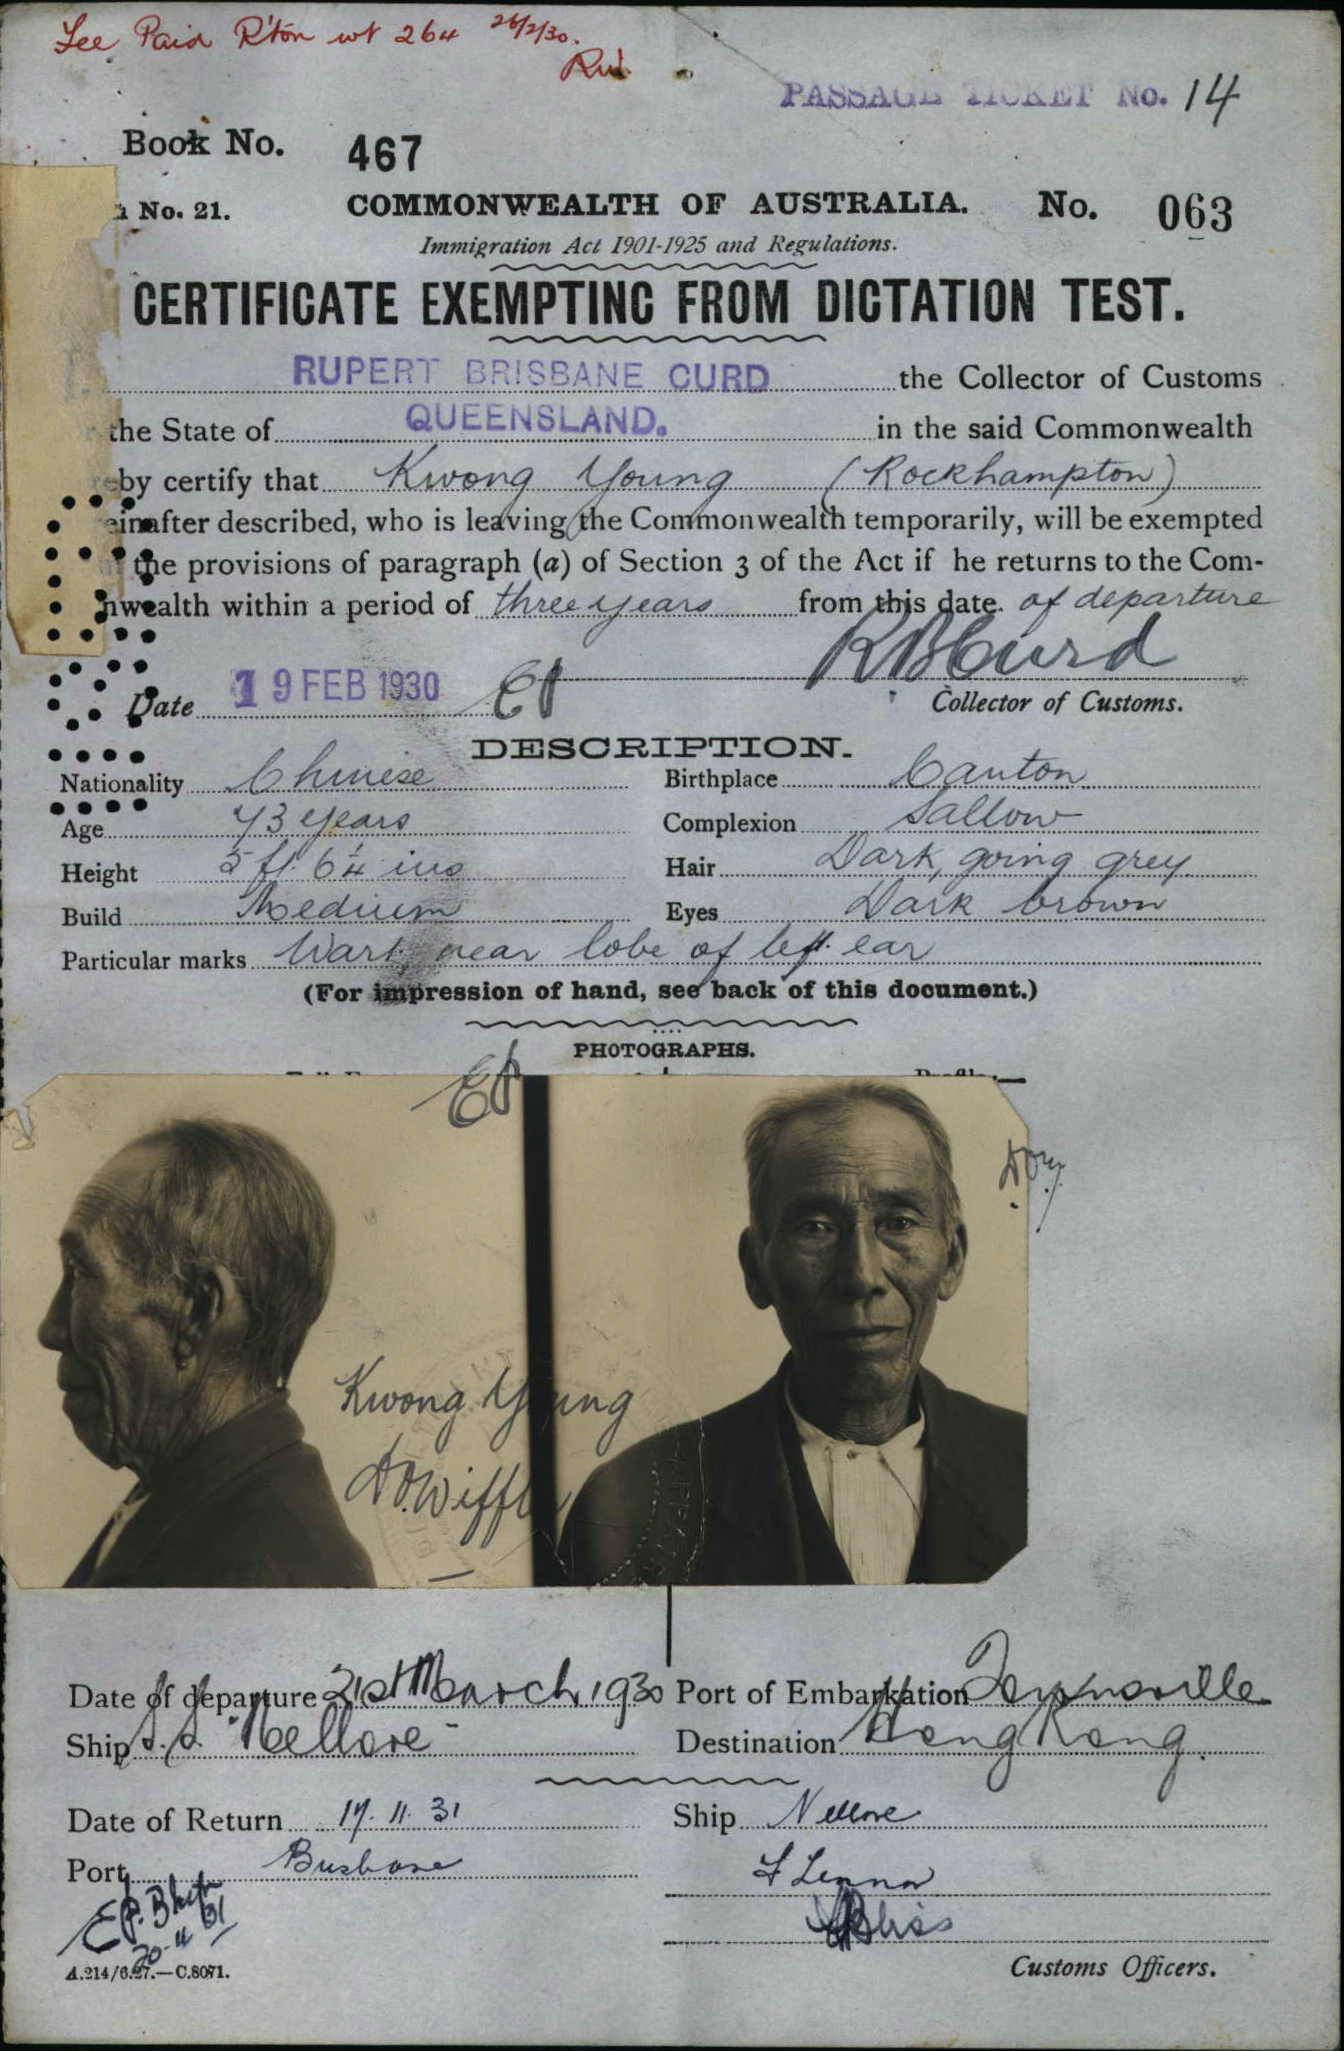 Fee Paid R'ton wt 264 26/2/30.
PASSAGE TICKET No. 14
Book No. 467
No. 21. COMMONWEALTH OF AUSTRALIA. No. 063
Immigration Act 1901-1925 and Regulations.
CERTIFICATE EXEMPTING FROM DICTATION TEST.
RUPERT BRISBANE CURD the Collector of Customs
the State of QUEENSLAND. in the said Commonwealth
eby certify that Kwong Young (Rockhampton)
einafter described, who is leaving the Commonwealth temporarily, will be exempted
the provisions of paragraph (a) of Section 3 of the Act if he returns to the Com-
nwealth within a period of three years from this date. of departure
R B Curd
Date 19 FEB 1930
Collector of Customs.
DESCRIPTION.
Nationality Chinese Birthplace Canton
Age 73 years Complexion Sallow
Height 5 ft. 6 1/4 ins Hair Dark, going grey
Build Medium Eyes Dark brown
Particular marks Wart, near lobe of left ear
(For impression of hand, see back of this document.)
PHOTOGRAPHS.
Kwong Young
Date of departure 21st March 1930 Port of Embarkation Townsville
Ship S.S. "Nellore" Destination Hong Kong.
Date of Return 17. 11. 31 Ship Nellore
Port Brisbane
20-11-31
A.214/6.27.—C.8071.
Customs Officers.